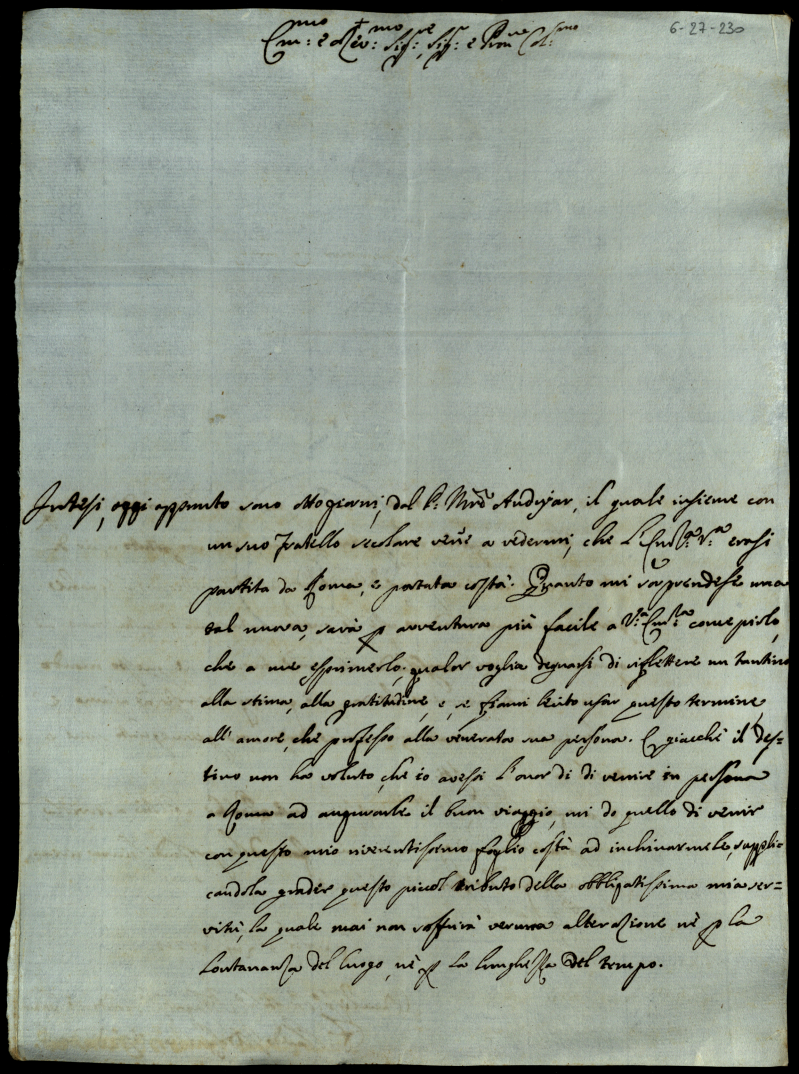 6-27-230
Em:mo e Rev:mo Sig:re Sig:r e Pron:ne Col:mo
Intesi, oggi appunto sono otto giorni, dal P: Mro Andujar, il quale insieme con
un suo fratello secolare venne a vedermi, che L'Em:za V:a erasi
partita da Roma, e portata costà. Quanto mi sorprendesse una
tal nuova, sarà p avventura più facile a V:a Em:za concepirlo,
che a me esprimerlo, qualor voglia degnarsi di riflettere un tantino
alla stima, alla gratitudine, e, se siami lecito usar questo termine
all' amore, che professo alla venerata sua persona. E giacchè il des=
tino non ha voluto, che io avessi l'onor di di venire in persona
a Roma ad augurarle il buon viaggio, mi do quello di venir
con questo mio riverentissimo foglio costà ad inchinarmele, suppli=
candola gradir questo piccol tributo della obbligatissima mia ser=
vitù, la quale mai non soffrirà veruna alterazione nè p la
lontananza del luogo, nè p la lunghezza del tempo.